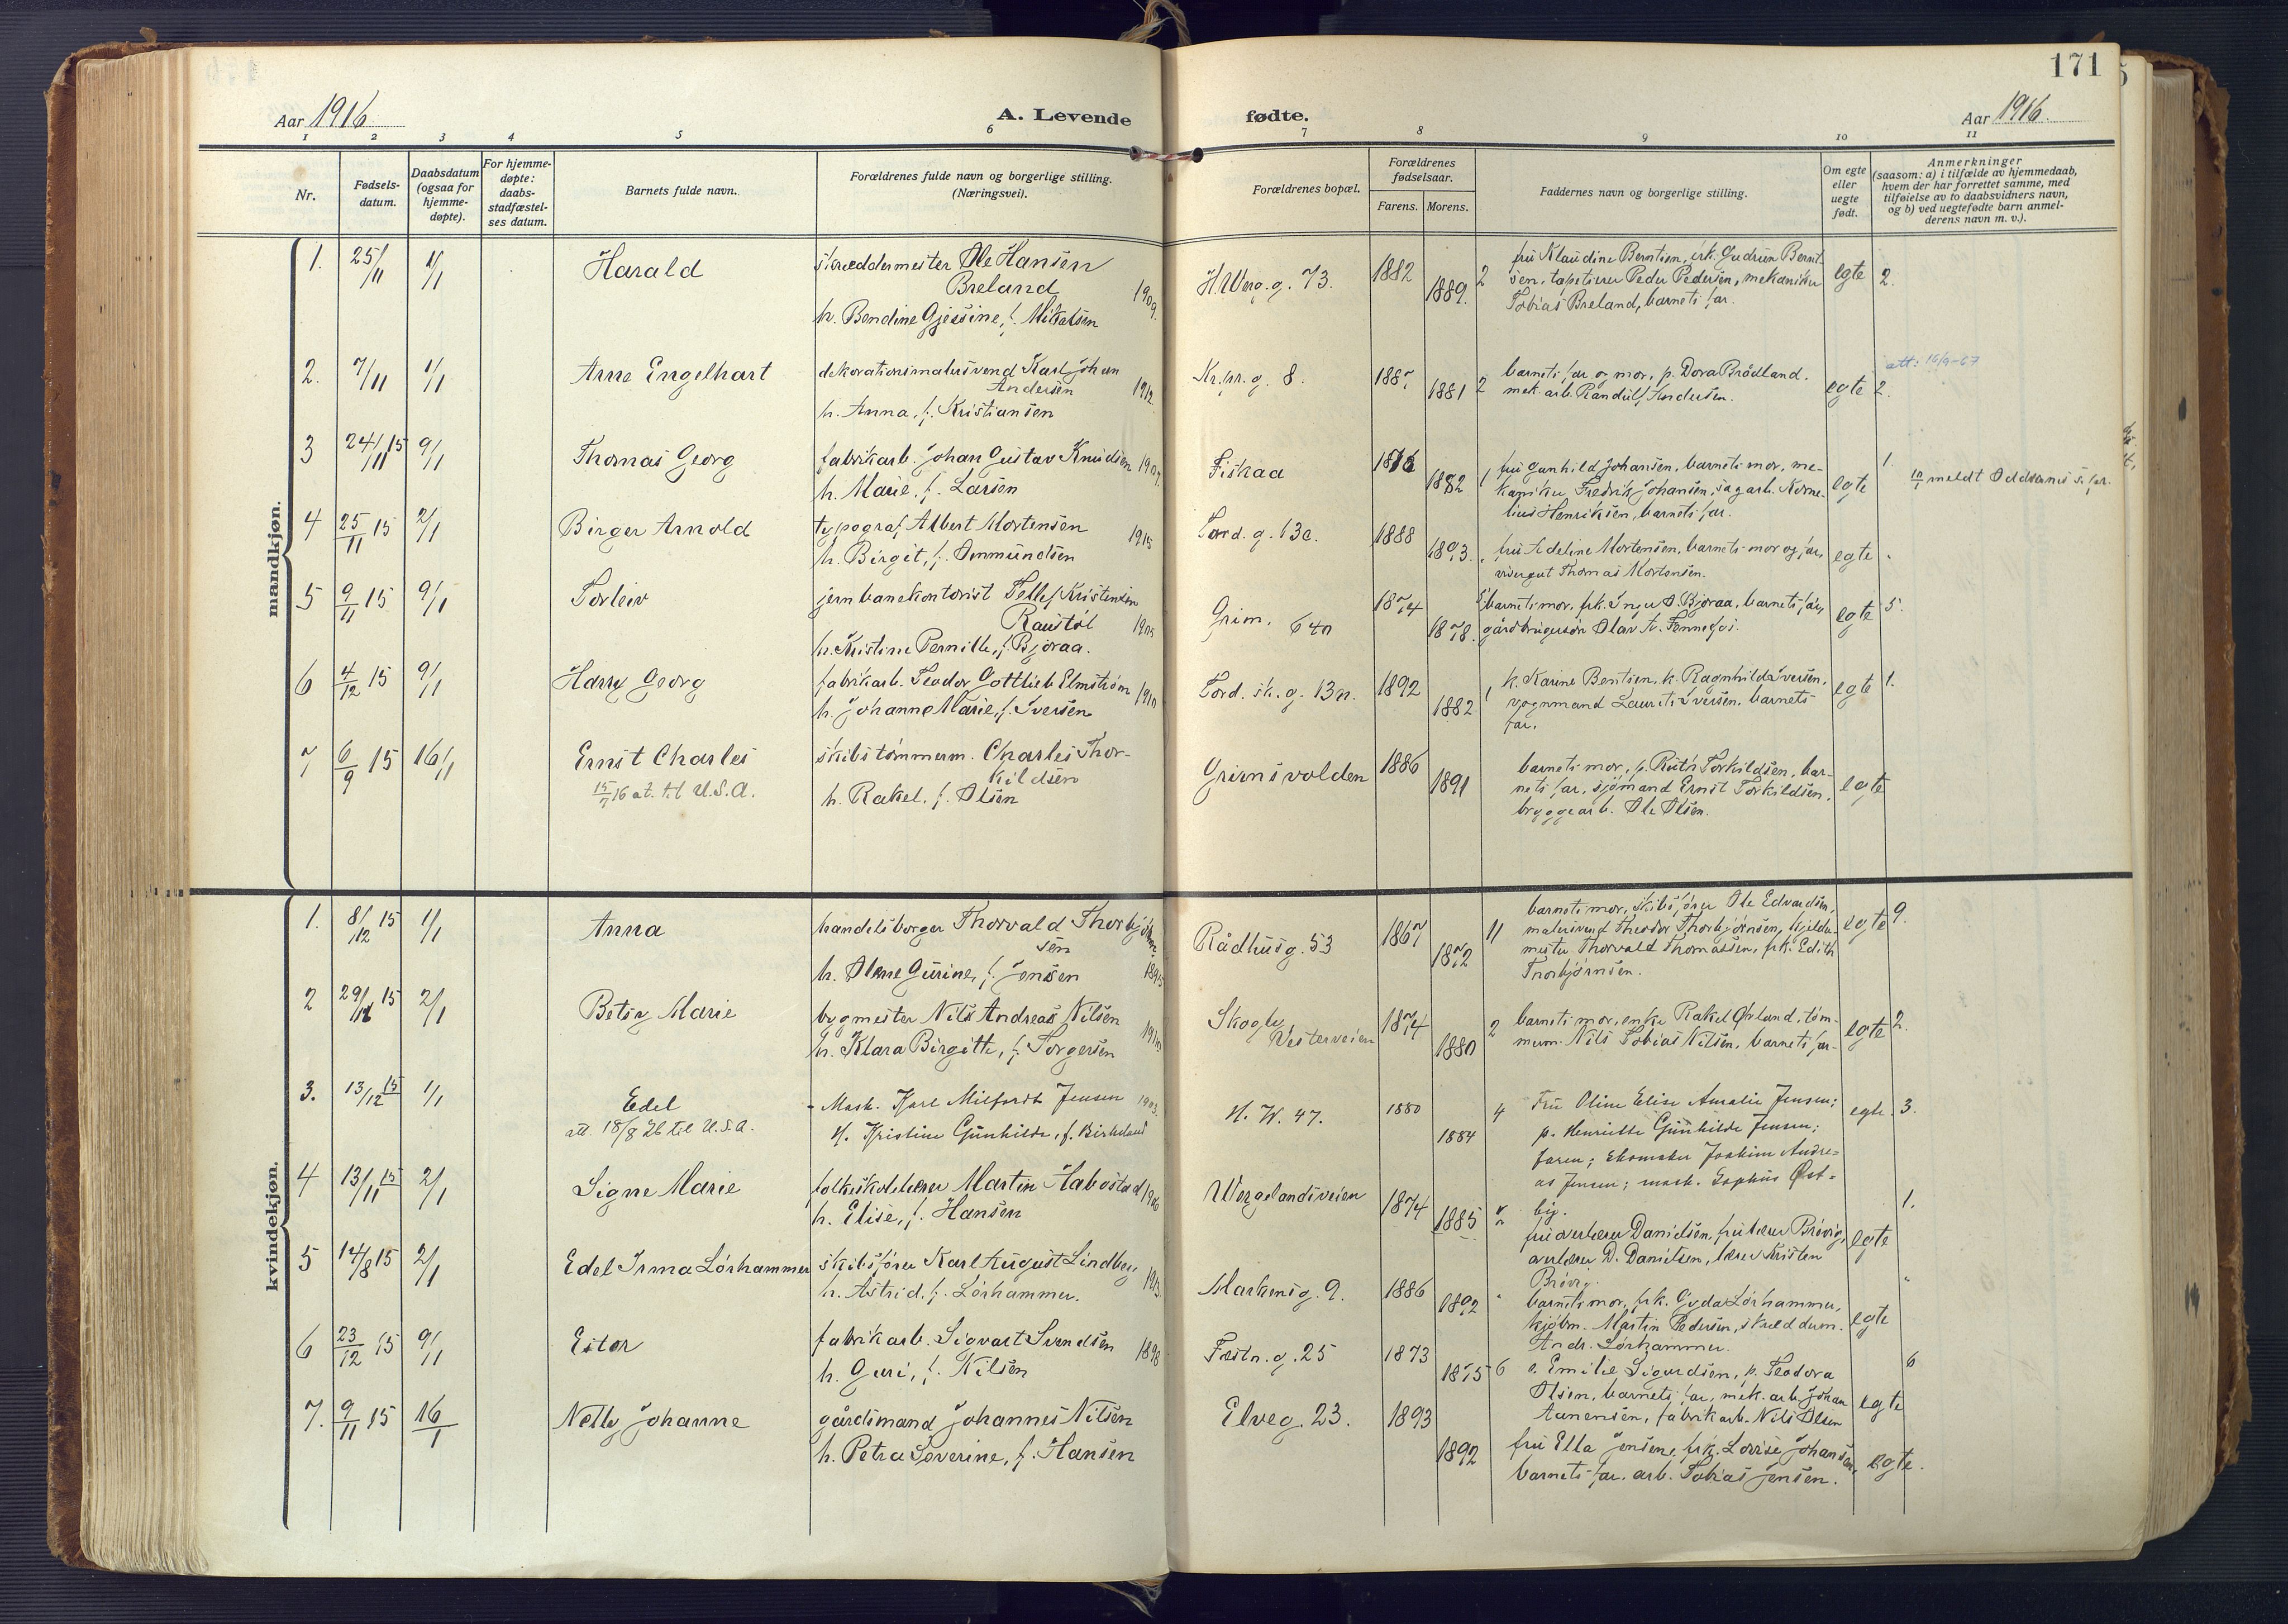 171
Aar 1916
A. Levende
fødte.
Aar 1916.
1 2 3 4 5 6 7 8 9 10 11
Nr.
Fødsels-
datum.
Daabsdatum
(ogsaa for
hjemme-
døpte).
For hjemme-
døpte:
daabs-
stadfæstel-
ses datum.
Barnets fulde navn.
Forældrenes fulde navn og borgerlige stilling.
(Næringsvei).
Forældrenes bopæl.
Forældrenes
fødselsaar.
Farens. Morens.
Faddernes navn og borgerlige stilling.
Om egte
eller
uegte
født.
Anmerkninger
(saasom: a) i tilfælde av hjemmedaab,
hvem der har forrettet samme, med
tilføielse av to daabsvidners navn,
og b) ved uegtefødte barn anmel-
derens navn m. v.).
mandkjøn.
1. 25/11 1/1 Harald
skræddermester Ole Hansen
Breland 1909.
h. Bendine Gjessine, f. Mikalsen
H.Werg.g. 73. 1882 1889. 2
fru Klaudine Berntsen, frk. Gudrun Bernt-
sen, tapetserer Peder Pedersen, mekaniker
Tobias Breland, barnets far.
egte 2.
2. 7/11 1/1 Arne Engelhart
dekorationsmalersvend Karl Johan
Andersen 1912.
h. Anna, f. Kristiansen
Kr.pr.g. 8. 1887 1881 2
barnets far og mor, p. Dora Brådland.
mek. arb. Randulf Andersen.
egte 2.
att: 16/9-67
3 24/11 15 9/1 Thomas Georg
fabrikarb. Johan Gustav Knudsen
h. Marie, f. Larsen
Fiskaa 1882 1
fru Gunhild Johansen, barnets mor, me-
kaniker Fredrik Johansen, sagarb. Korne-
lius Henriksen, barnets far.
egte 1.
meldt Oddernes s. pr.
4 25/11 15 2/1 Birger Arnold
typograf Albert Mortensen 1915
h. Birgit, f. Ommundsen
Tord. g. 1888 1893.
fru Adeline Mortensen, barnets mor og far,
visergut Thomas Mortensen.
egte
5 9/11 15 9/1 Torleiv
jernbanekontorist Tellef Kristensen
Raustøl
h. Kristine Pernille, f. Bjoraa.
Grim. 1874 1878.
barnets mor, frk. Inger O. Bjoraa, barnets far,
gårdbrugersøn Olav A.
egte 5.
6 4/12 15 9/1 Harry Georg
fabrikarb. Teodor Gottlieb Elmstrøm 1910
h. Johanne Marie, f. Iversen
Tord. sk. g. 13 1892 1882 1
k. Karine Bentsen, k. Ragnhild Iversen,
vognmand Laurits Iversen, barnets
far.
egte 1.
7 6/9 15 16/1 Ernst Charles
15/7 16 at. til U.S.A.
skibstømmerm. Charles Thor-
kildsen
h. Rakel, f. Olsen
Grimsvolden 1886 1891
barnets mor, p. Ruth Torkildsen, bar-
nets far, sjømand Ernst Torkildsen,
bryggearb. Ole Olsen.
egte
kvindekjøn.
1. 8/12 15 1/1 Anna
handelsborger Thorvald Thorbjørn-
sen 1895
h. Olene Gurine, f. Jensen
Rådhusg. 53 1867 1872 11
barnets mor, skibsfører Ole Edvardsen,
malersvend Theodor Thorbjørnsen, kjelde-
mester Thorvald Thomassen, frk. Edith
Thorbjørnsen.
egte 9.
2 29/11 15 2/1 Betsy Marie
bygmester Nils Andreas Nilsen
h. Klara Birgitte, f. Torgersen
Skogly,
Vesterveien 1874 1880 2
barnets mor, enke Rakel Øvland, tøm-
merm. Nils Tobias Nilsen, barnets far.
egte 2.
3. 13/12 15 1/1 Edel
att. 18/8 26 til U.S.A.
Mask. Karl Milfordt Jensen 1903.
H. Kristine Gunhilde, f. Birkeland
H. W. 47. 1880 1884 4
Fru Oline Elise Amalie Jensen;
p. Henriette Gunhilde Jensen;
faren; Skomaker Joakim Andre-
as Jensen; mask. Sophus Øst-
big.
egte. 3.
4 13/11 15 2/1 Signe Marie
folkeskolelærer Martin Habostad
h. Elise, f. Hansen
Wergelandsveien 1874 1885
fru overlærer Danielsen, fru lærer Brøvig,
overlærer D. Danielsen, lærer Kristen
Brøvig.
egte 1.
5 14/8 15 2/1 Edel Irma Lørhammer
skibsfører Karl August Lindberg 1913.
h. Astrid, f. Lørhammer.
Markensg. 9. 1886 1892
barnets mor, frk. Gyda Lørhammer,
kjøbm. Martin Pedersen, skræddderm.
Andr. Lørhammer.
egte
6 23/12 15 9/1 Ester
fabrikarb. Sigvart Svendsen 1898
h. Guri, f. Nilsen
Fæstn. g. 25 1873 1875 6
e. Emilie Sigurdsen, p. Teodora
Olsen, barnets far, mek. arb. Johan
Aanensen, fabrikarb. Nils Olsen
egte 6
7. 9/11 15 16/1 Nelly Johanne
gårdsmand Johannes Nilsen
h. Petra Severine, f. Hansen
Elveg. 23. 1893 1892
fru Ella Jensen, frk. Lovise Johansen,
barnets far, arb. Tobias Jensen.
egte.